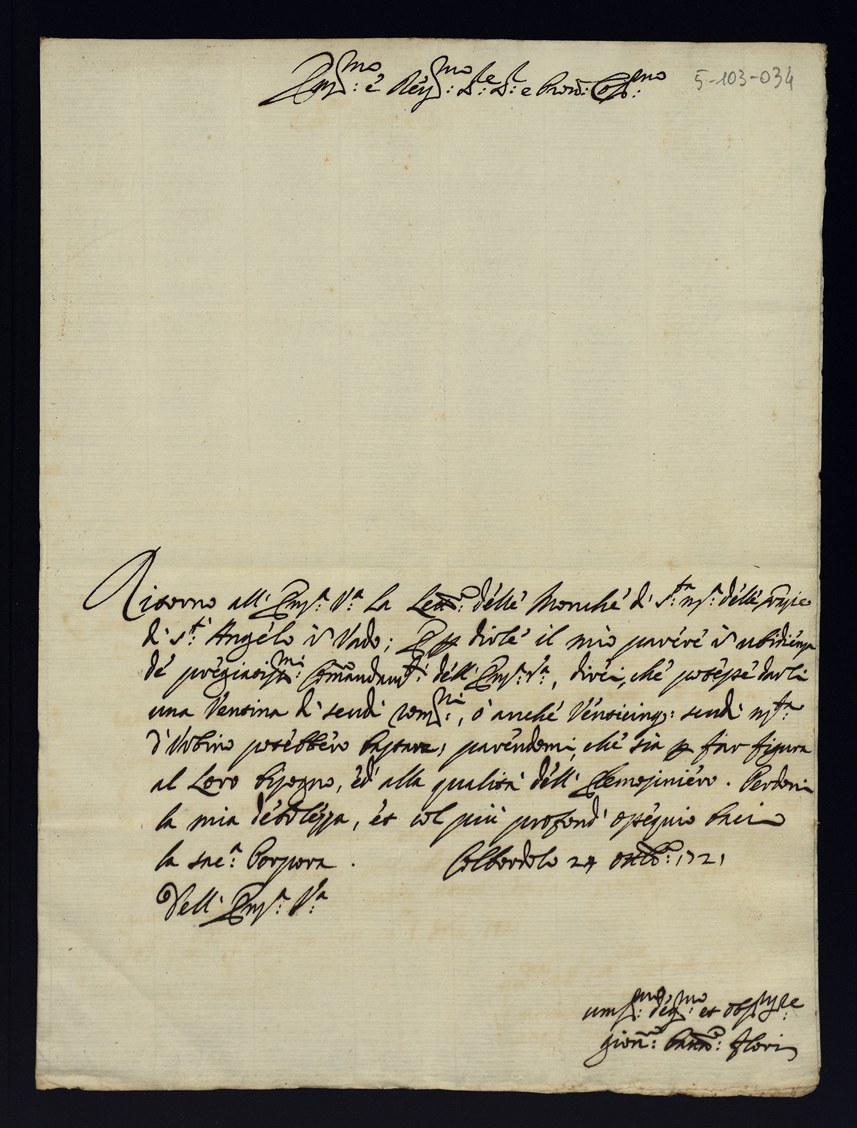 Em:mo e Rev:mo S:re S:re e Pron: Col:mo
5-103-034
Ritorno all' Em:a V:a la Lett:a delle Monache di S:ta M:a delle Grazie
di S:t Angelo in Vado; E p dirle il mio parere in ubidienza
de pregiatis:mi Comandam:ti dell' Em:a V:a, direi, che potesse darli
una Ventina di scudi rom:ni, ò anche Venticinq: scudi
d'Urbino potrebbero bastare, parendomi, che sia p far figura
al Loro bisogno, ed alla qualità dell' Elemosiniero. Perdoni
la mia debolezza, et col più profond' ossequio bacio
la sac:a Porpora. Colbordolo 24 ottob: 1721
Dell' Em:a V:a
um:mo dev:mo et obl:mo
Gion: Flori